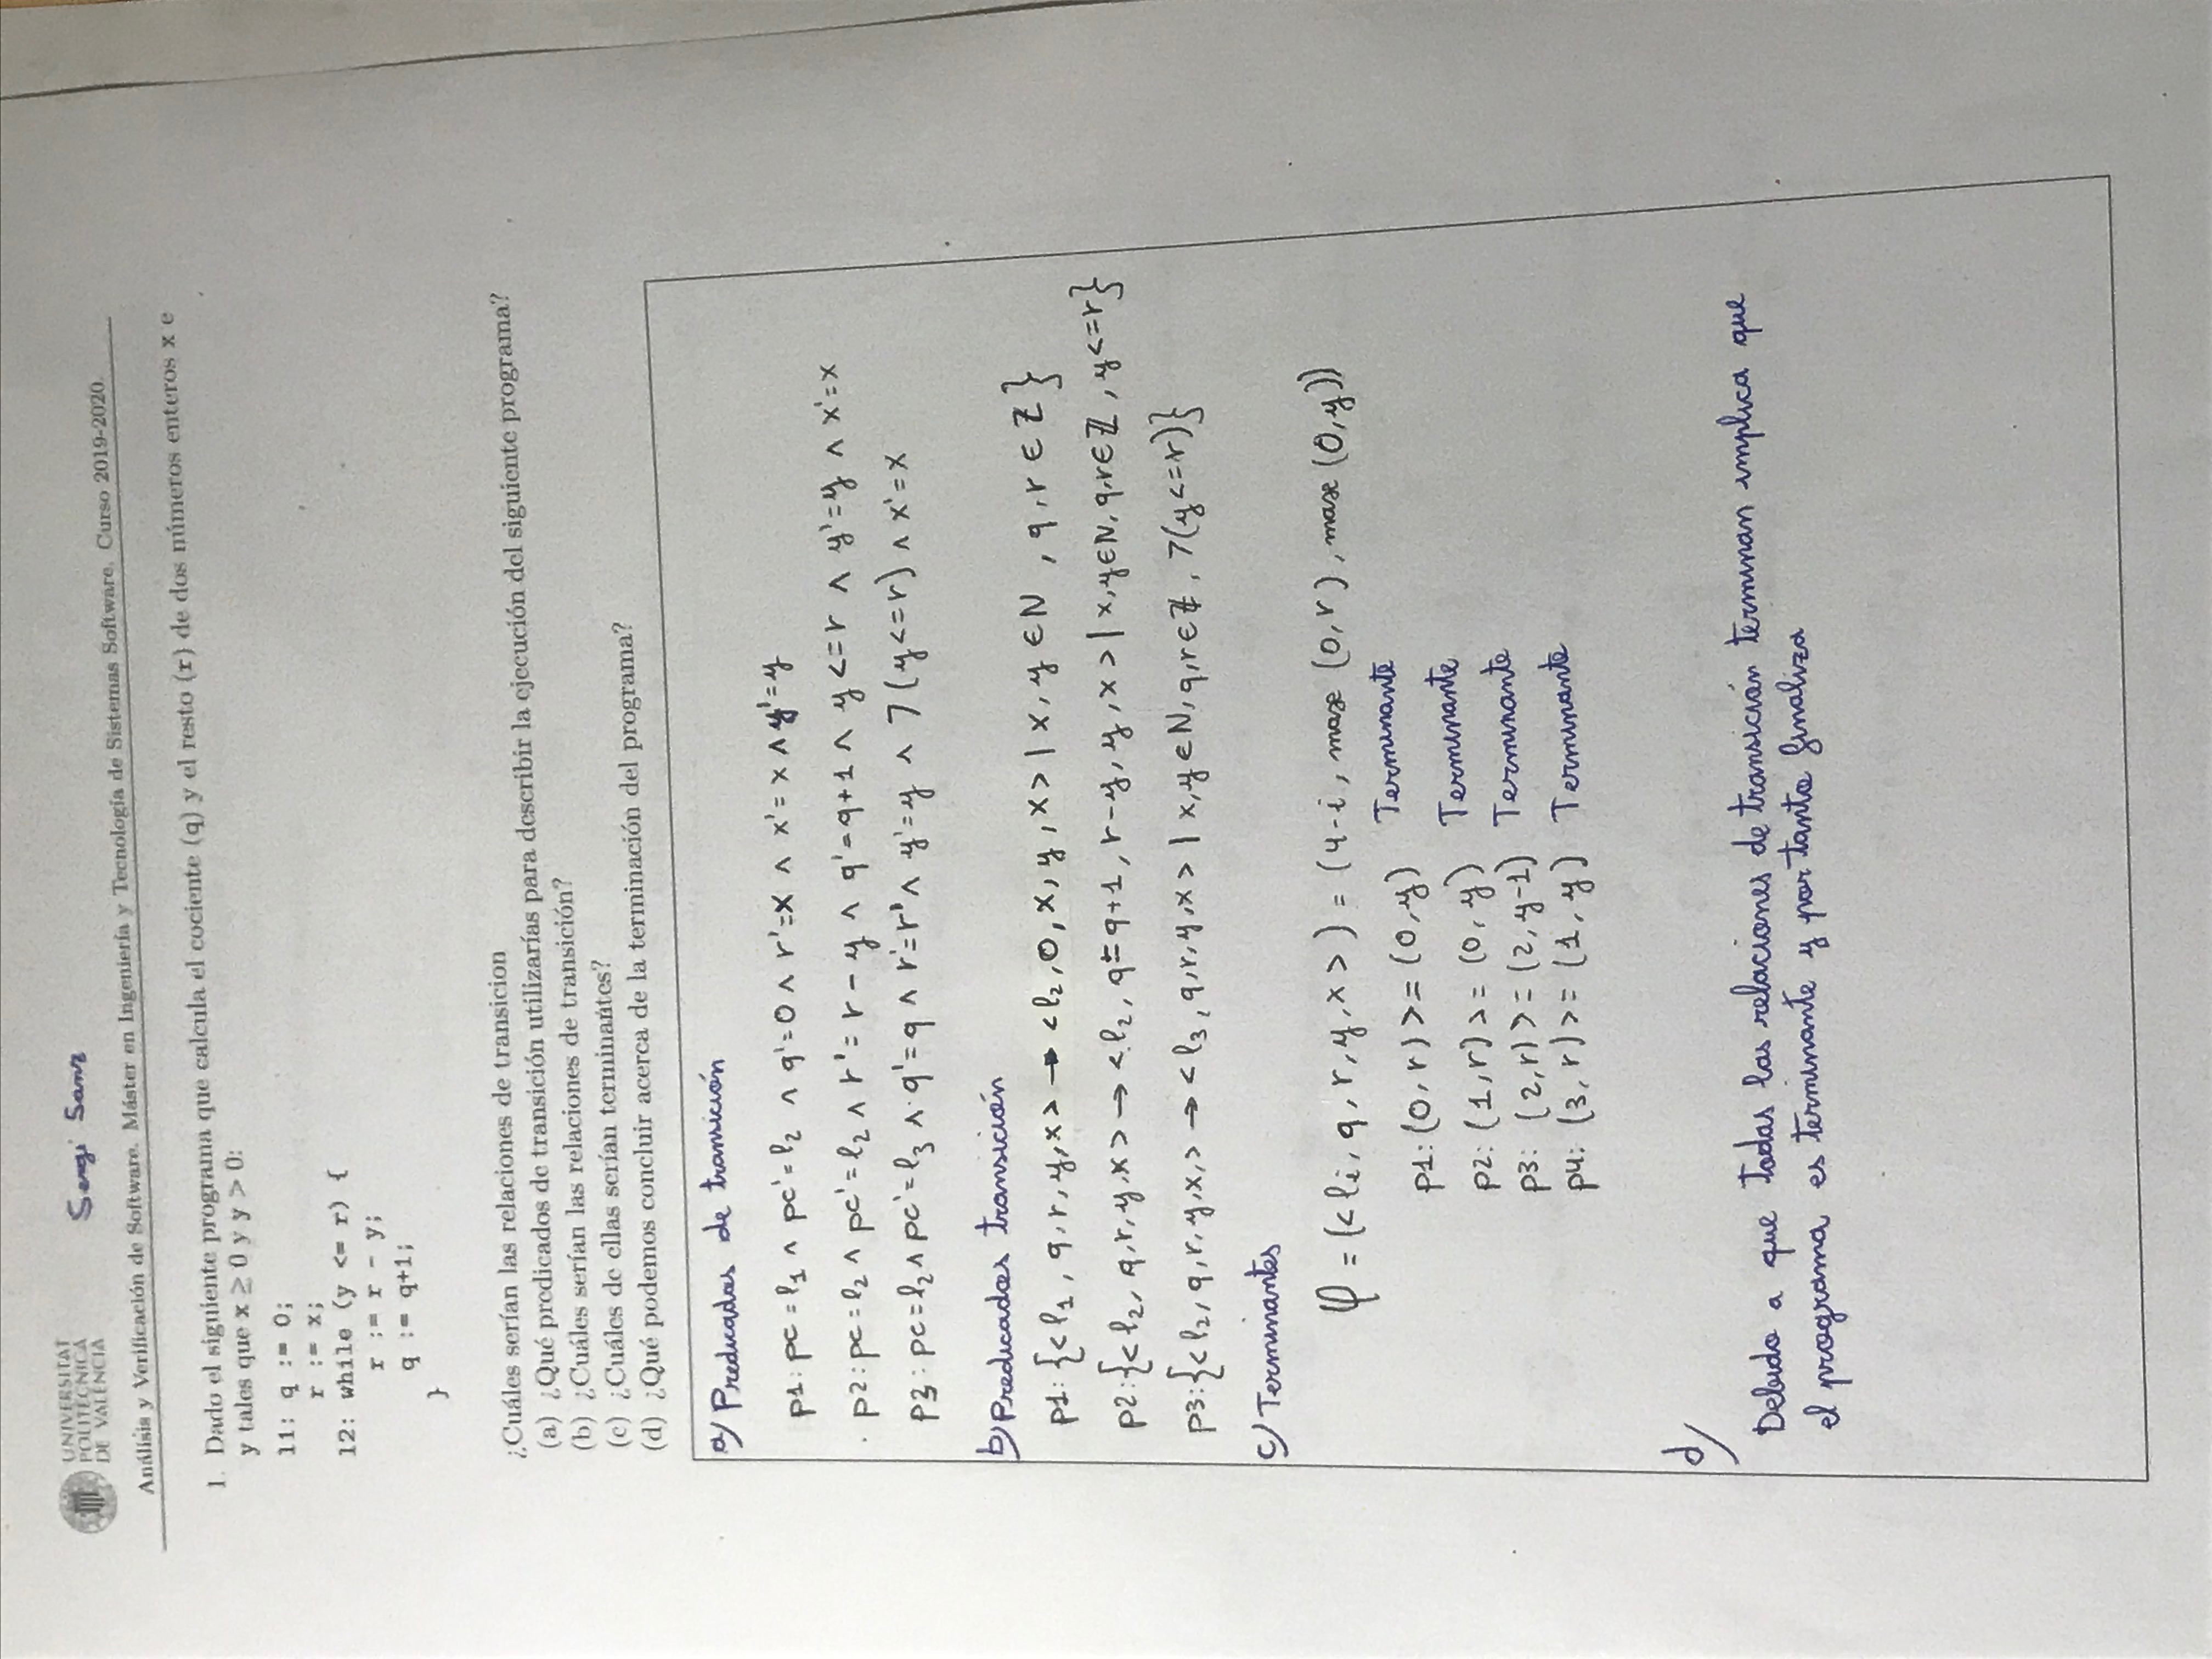 UNIVERSITAT
POLITECNICA
DE VALENCIA
Sergi Sanz
Análisis y Verificación de Software. Máster en Ingeniería y Tecnología de Sistemas Software. Curso 2019-2020.
1. Dado el siguiente programa que calcula el cociente (q) y el resto (r) de dos números enteros x e
y tales que x ≥ 0 y y > 0:
l1: q := 0;
r := x;
l2: while (y <= r) {
r := r - y;
q := q+1;
}
¿Cuáles serían las relaciones de transicion
(a) ¿Qué predicados de transición utilizarías para describir la ejecución del siguiente programa?
(b) ¿Cuáles serían las relaciones de transición?
(c) ¿Cuáles de ellas serían terminantes?
(d) ¿Qué podemos concluir acerca de la terminación del programa?
a) Predicados de transición
p1: pc = l1 ∧ pc' = l2 ∧ q' = 0 ∧ r' = x ∧ x' = x ∧ y' = y
p2: pc = l2 ∧ pc' = l2 ∧ r' = r - y ∧ q' = q+1 ∧ y <= r ∧ y' = y ∧ x' = x
p3: pc = l2 ∧ pc' = l3 ∧ q' = q ∧ r' = r' ∧ y' = y ∧ ¬(y <= r) ∧ x' = x
b) Predicados transición
p1: {< l1, q, r, y, x > → < l2, 0, x, y, x > | x, y ∈ N , q, r ∈ Z}
p2: {< l2, q, r, y, x > → < l2, q = q+1, r-y, y, x > | x, y ∈ N, q, r ∈ Z, y <= r}
p3: {< l2, q, r, y, x, > → < l3, q, r, y, x > | x, y ∈ N, q, r ∈ Z, ¬(y <= r)}
c) Terminantes
φ = (< li, q, r, y, x >) = (4-i, max (0, r), max (0, y))
p1: (0, r) >= (0, y) Terminante
p2: (1, r) >= (0, y) Terminante
p3: (2, r) >= (2, y-1) Terminante
p4: (3, r) >= (1, y) Terminante
d)
Debido a que todas las relaciones de transición terminan implica que
el programa es terminante y por tanto finaliza